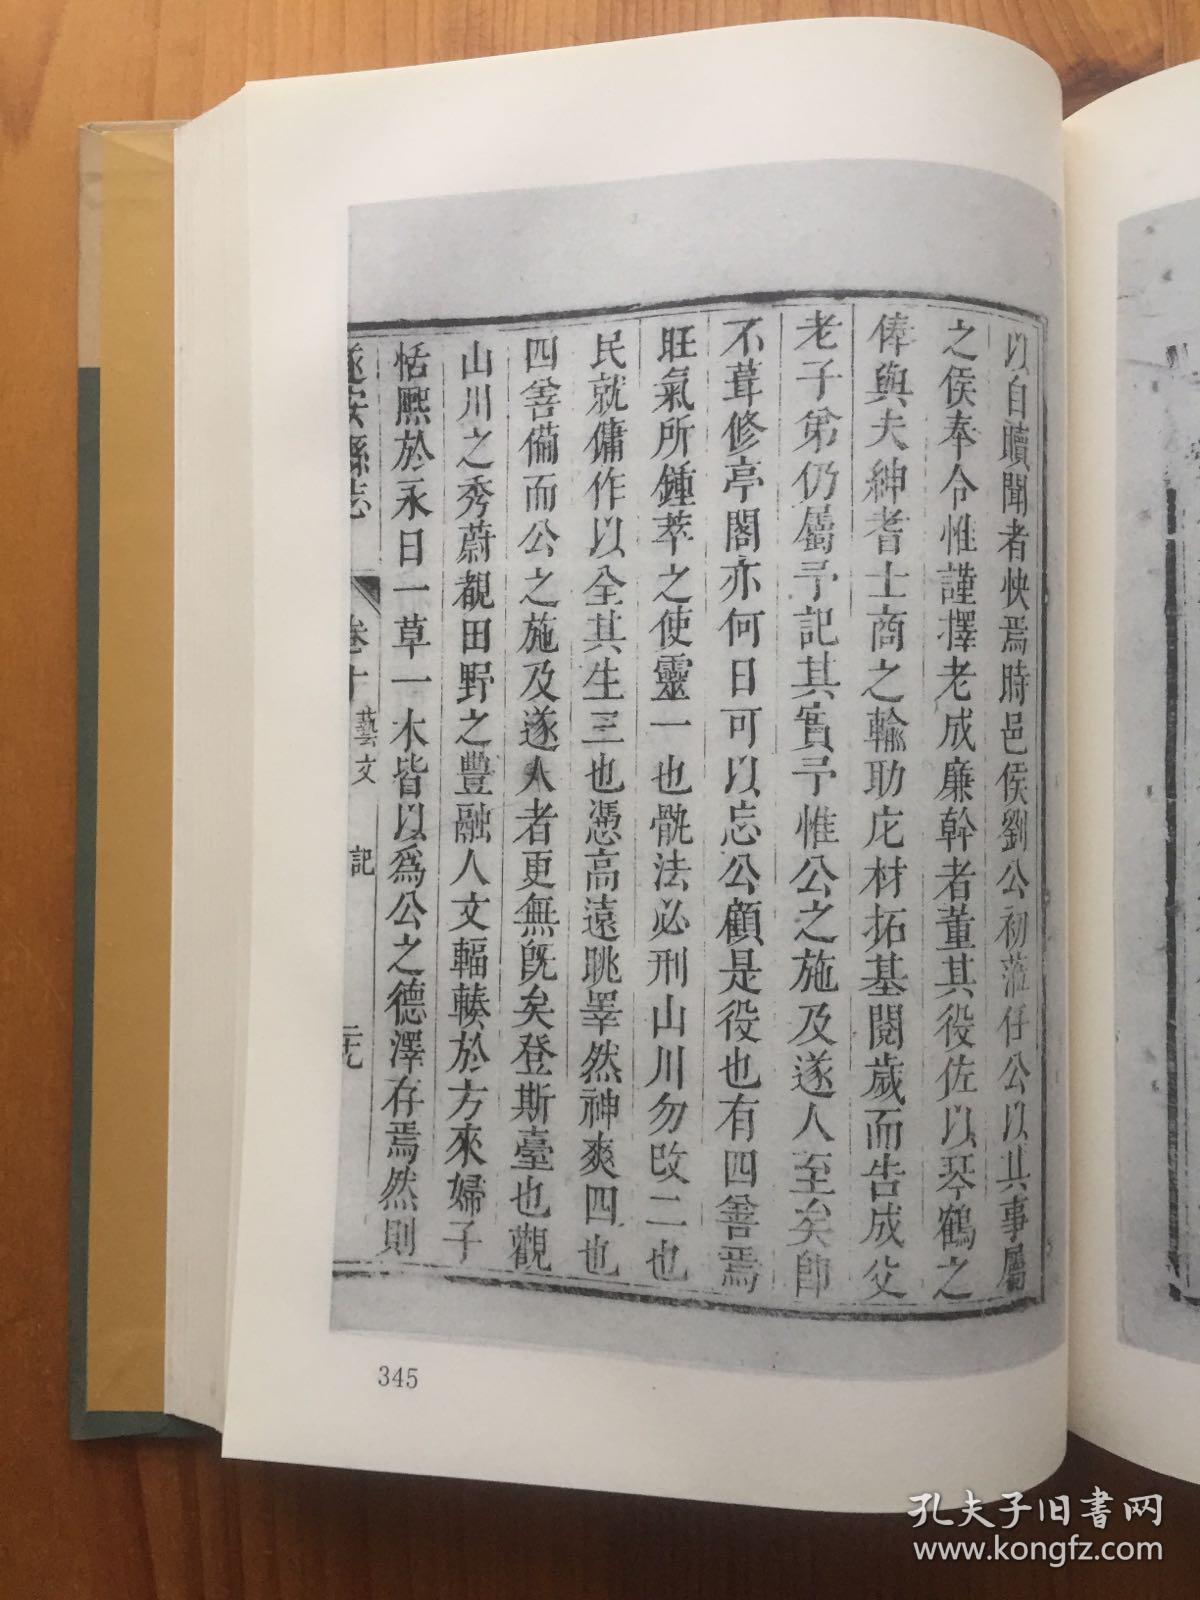 以自贖聞者快焉時邑侯劉公初蒞仔公以其事屬
之侯奉令惟謹擇老成廉幹者董其役佐以琴鶴之
俸與夫紳耆士商之輸助庀材拓基閱歲而告成父
老子弟仍屬予記其實予惟公之施及遂人至矣卽
不葺修亭閣亦何日可以忘公顧是役也有四善焉
旺氣所鍾萃之使靈一也骫法必刑山川勿改二也
民就傭作以全其生三也憑高遠眺睪然神爽四也
四善備而公之施及遂人者更無旣矣登斯臺也觀
山川之秀蔚覩田野之豐融人文輻輳於方來婦子
恬熈於永日一草一木皆以爲公之德澤存焉然則
遂安縣志 卷十 藝文 記
345
孔夫子旧书网
www.kongfz.com